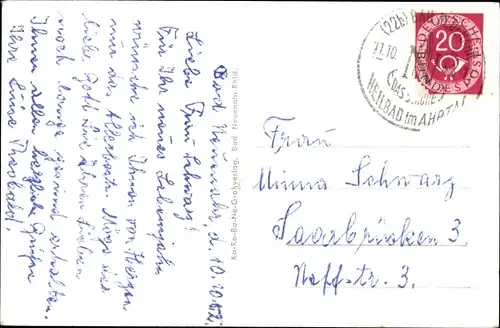 Bad Neuenahr, d. 10.10.52.
Liebe Frau Schwarz!
Für Ihr neues Lebensjahr
wünsche ich Ihnen von Herzen
nur das Allerbeste. Möge der
liebe Gott Sie Ihren Lieben
noch lange gesund erhalten.
Ihnen allen herzliche Grüße
Ihre Luise Theobald.
Ka-Ra-Ba-Na-Großverlag, Bad Neuenahr Rhld.
(22b) BAD
11.10.
DAS SCHÖNE
HEILBAD im AHRTAL
DEUTSCHE BUNDESPOST
20
Frau
Minna Schwarz
Saarbrücken 3.
Neff-str. 3.